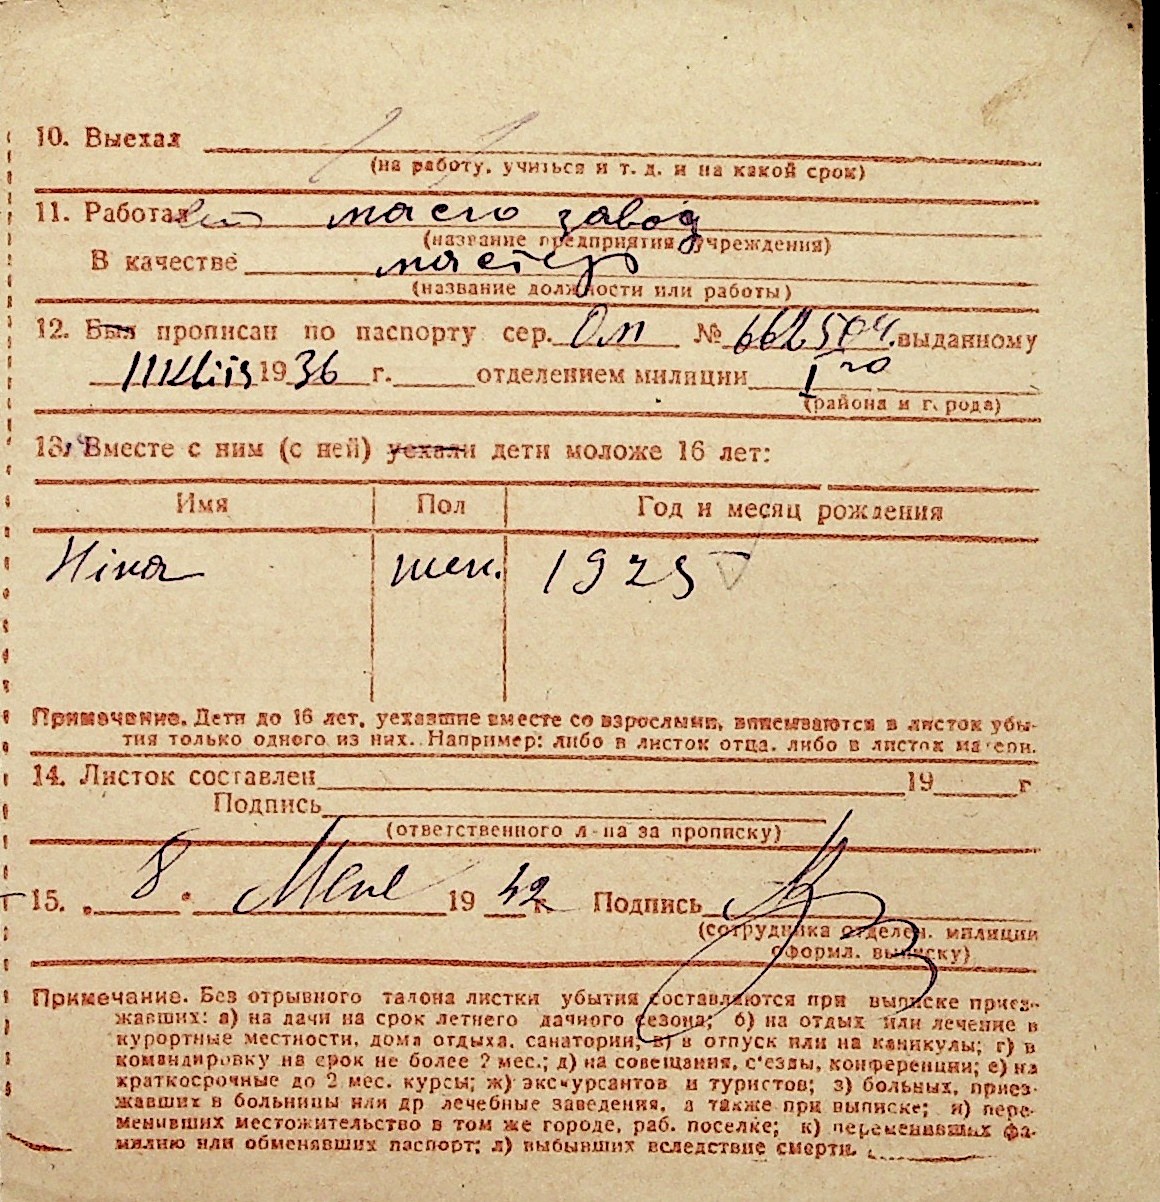 10. Выехал
(на работу, учиться и т. д. и на какой срок)
11. Работал масло завод
(название предприятия учреждения)
В качестве мастер
(название должности или работы)
12. Был прописан по паспорту сер. Оm № 662504 выданному
1936 г. отделением милиции I го
(района и города)
13. Вместе с ним (с ней) уехали дети моложе 16 лет:
Имя Пол Год и месяц рождения
Ніна жен. 1925
Примечание. Дети до 16 лет, уехавшие вместе со взрослыми, вписываются в листок убы-
тия только одного из них. Например: либо в листок отца, либо в листок матери.
14. Листок составлен 19 г
Подпись
(ответственного л-ца за прописку)
15. „8“ 1942 г. Подпись
(сотрудника отделен. милиции
оформл. выписку)
Примечание. Без отрывного талона листки убытия составляются при выписке приез-
жавших: а) на дачи на срок летнего дачного сезона; б) на отдых или лечение в
курортные местности, дома отдыха, санатории; в) в отпуск или на каникулы; г) в
командировку на срок не более 2 мес.; д) на совещания, с'езды, конференции; е) на
краткосрочные до 2 мес. курсы; ж) экскурсантов и туристов; з) больных, приез-
жавших в больницы или др лечебные заведения, а также при выписке; и) пере-
менивших местожительство в том же городе, раб. поселке; к) переменивших фа-
милию или обменявших паспорт; л) выбывших вследствие смерти.